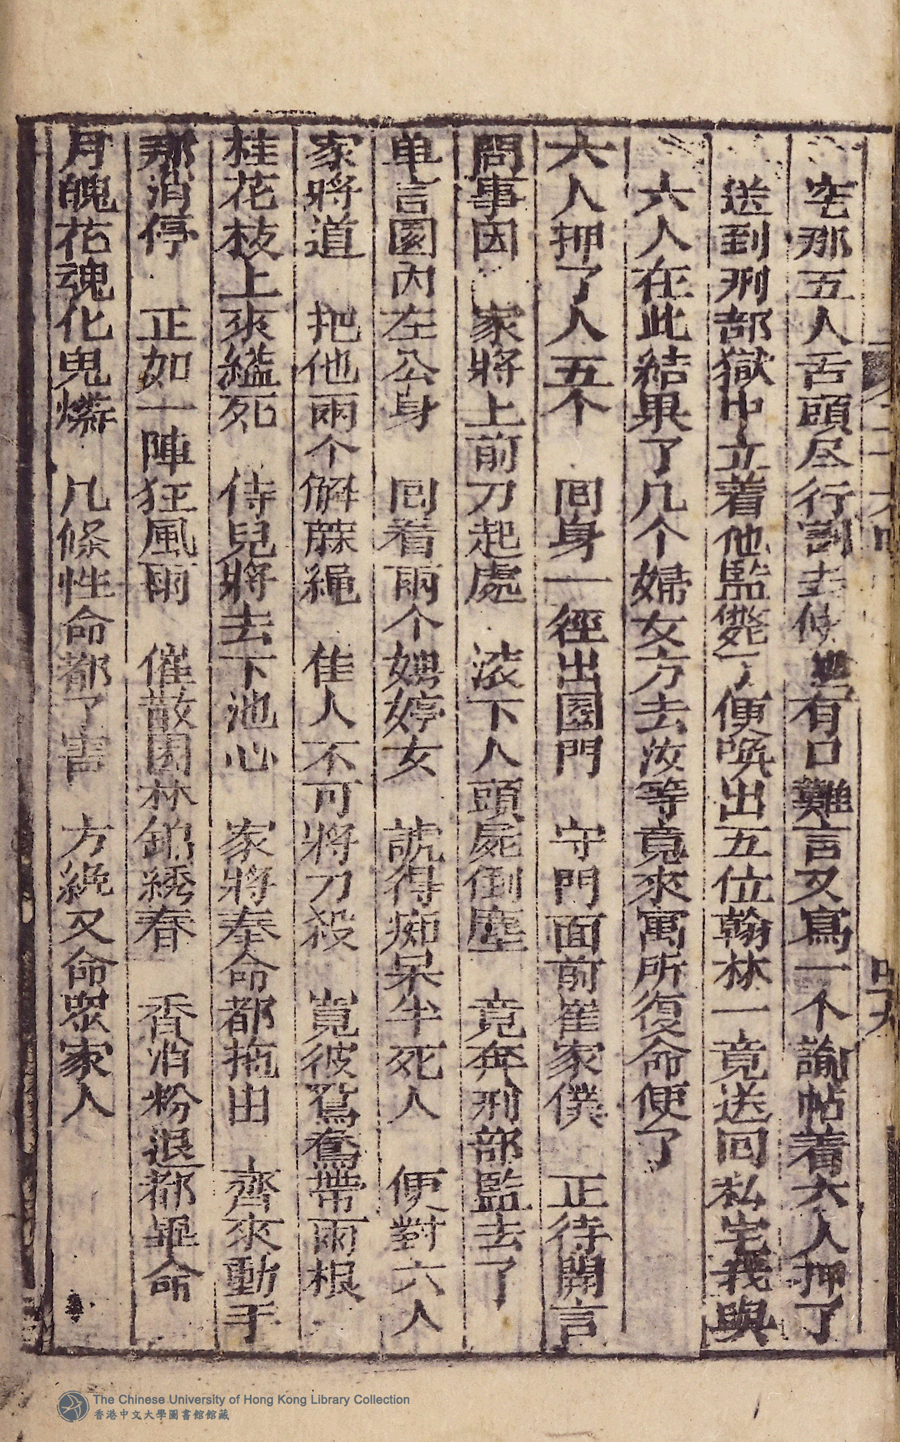 宅那五人舌頭尽行割去使 有口難言又寫一个諭帖着六人押了
送到刑部獄中立着他監斃了便喚出五位翰林一竟送回私宅我與
六人在此結果了几个婦女方去汝等竟來寓所復命便了
六人押了人五个 回身一徑出園門 守門面前崔家僕 正待開言
問事因 家將上前刀起處 滚下人頭屍倒塵 竟奔刑部監去了
单言園內左公身 回看兩个娉婷女 諕得痴呆半死人 便對六人
家將道 把他兩个解蔴繩 佳人不可將刀殺 覓彼鴛鴦帶雨根
桂花枝上來縊死 侍兒將去下池心 家將奉命都拖出 齊來動手
那消停 正如一陣狂風雨 催散园林錦綉春 香消粉退都畢命
月魄花魂化鬼燐 几條性命都了害 方絶又命眾家人
The Chinese University of Hong Kong Library Collection
香港中文大學圖書館館藏